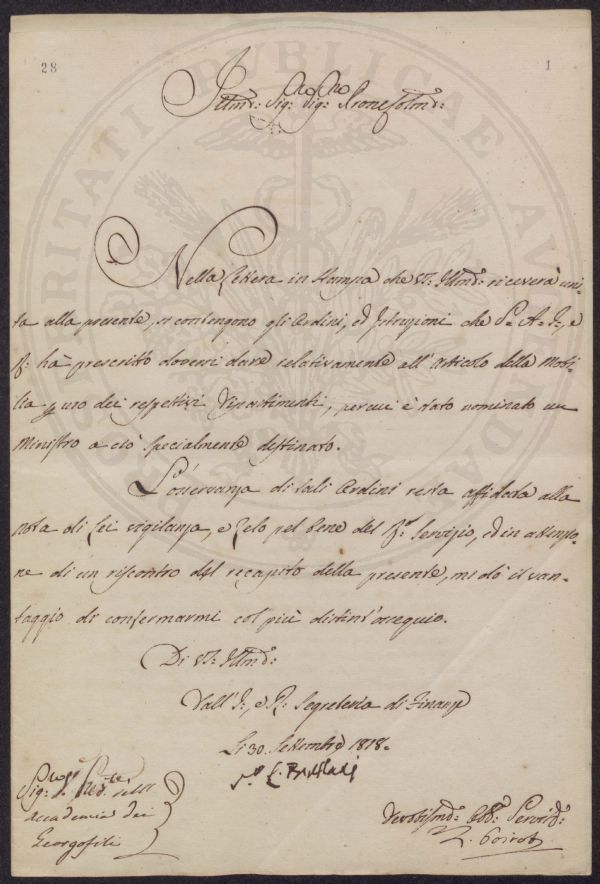 28 1
Illmo: Sig: Sig: Prone Colmo:
Nella Lettera in stampa che VS: Illma: riceverà uni-
ta alla presente, si contengono gli Ordini, ed Istruzioni che S. A. I., e
R: ha prescritto doversi dare relativamente all'articolo della Mobi-
lia p uso dei respettivi Dipartimenti, per cui è stato nominato un
Ministro a ciò specialmente destinato.
L'osservanza di tali Ordini resta affidata alla
nota di Lei vigilanza, e Zelo pel bene del R: Servizio, ed in attenzio-
ne di un riscontro del recapito della presente, mi dò il van-
taggio di confermarmi col più distint'ossequio.
Di VS: Illma:
Dall'I:, e R: Segreteria di Finanze
Li 30. Settembre 1818.
Sig:
Accademia dei
Georgofili
Devotissmo: Obb: Servid: